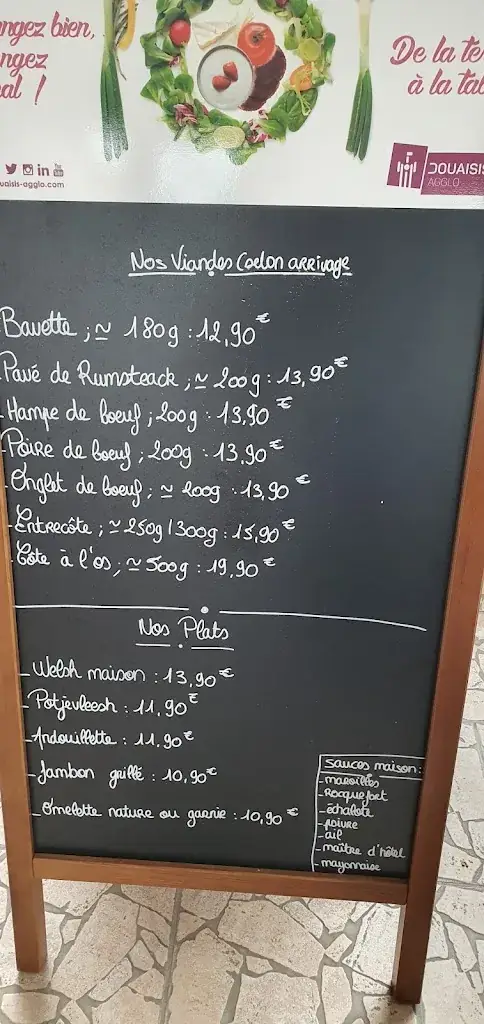 ngez bien,
ngez
al !
De la te
à la tab
uaisis-agglo.com
DOUAISIS
AGGLO
Nos Viandes (selon arrivage
Bavette ; ≃ 180g : 12,90€
Pavé de Rumsteack ; ≃ 200g : 13,90€
Hampe de boeuf ; 200g : 13,90 €
Poire de boeuf ; 200g : 13,90€
Onglet de boeuf ; ≃ 200g : 13,90 €
-Entrecôte ; ≃ 250g / 300g : 15,90€
Côte à l'os ; ≃ 500g : 19,90 €
Nos Plats
- Welsh maison : 13,90€
- Potjevleesh : 11,90€
- Andouillette : 11,90€
- Jambon grillé : 10,90€
- Omelette nature ou garnie : 10,90 €
sauces maison :
- maroilles
- roquefort
- échalote
- poivre
- ail
- maître d'hôtel
- mayonnaise